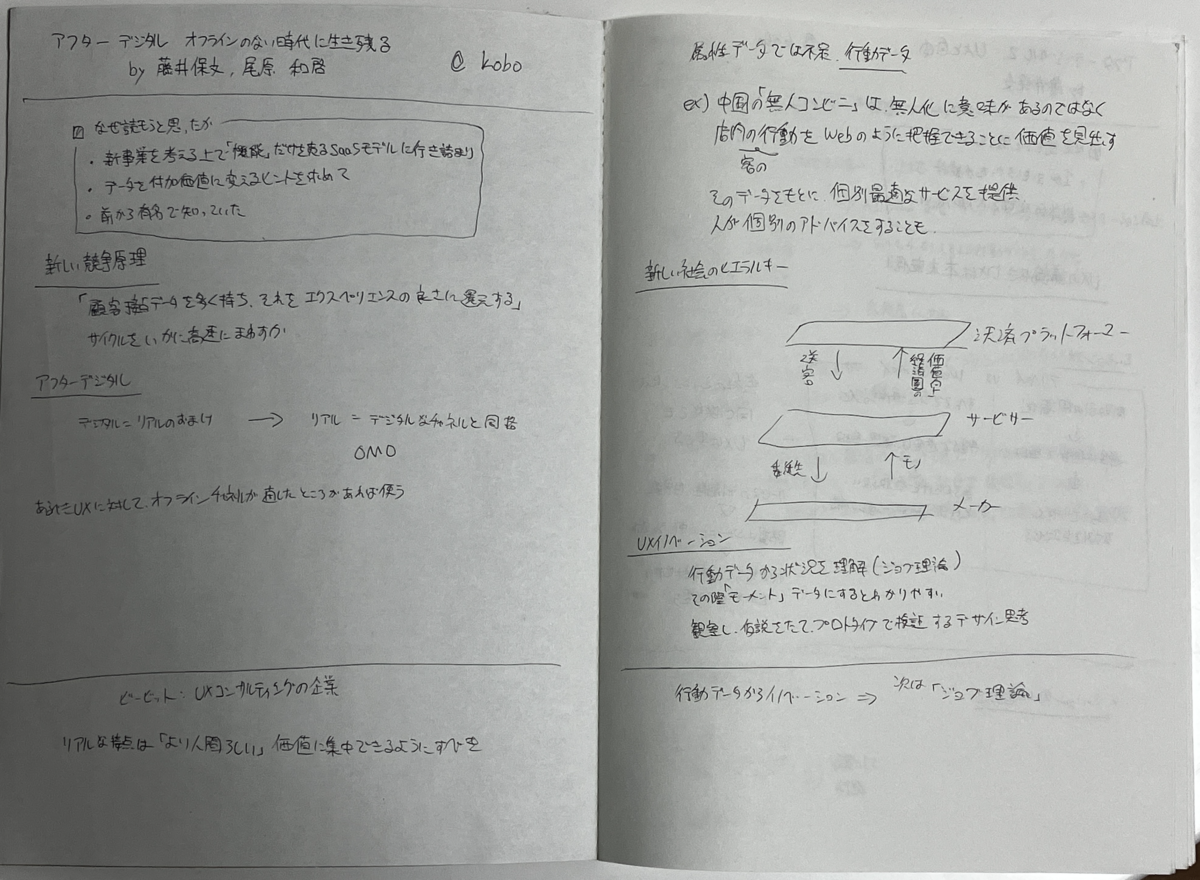 アフターデジタル オフラインのない時代に生き残る
by 藤井保文, 尾原 和啓
@ kobo
なぜ読もうと思ったか
・新事業を考える上で「機能」だけを売るSaaSモデルに行き詰まり
・データを付加価値に変えるヒントを求めて
・前から有名で知っていた
新しい競争原理
「顧客接点データを多く持ち、それをエクスペリエンスの良さに還元する」
サイクルをいかに高速にまわすか
アフターデジタル
デジタル=リアルのおまけ → リアル = デジタルなチャネルと同格
OMO
あるべきUXに対して、オフラインチャネルが適したところがあれば使う
ビービット:UXコンサルティングの企業
リアルな接点は「より人間らしい」価値に集中できるようにすべき
属性データでは不足. 行動データ
ex) 中国の「無人コンビニ」は、無人化に意味があるのではなく
店内の行動をWebのように把握できることに価値を見出す
客の
そのデータをもとに、個別最適なサービスを提供
人が個別のアドバイスをすることも.
新しい社会のヒエラルキー
決済プラットフォーマー
送客 ↓ ↑ 経済圏の価値向上
サービサー
↓ ↑ モノ
メーカー
UXイノベーション
行動データから状況を理解(ジョブ理論)
その際「モーメント」データにするとわかりやすい
観察し、仮説をたて、プロトタイプで検証するデザイン思考
行動データからイノベーション ⇒ 次は「ジョブ理論」